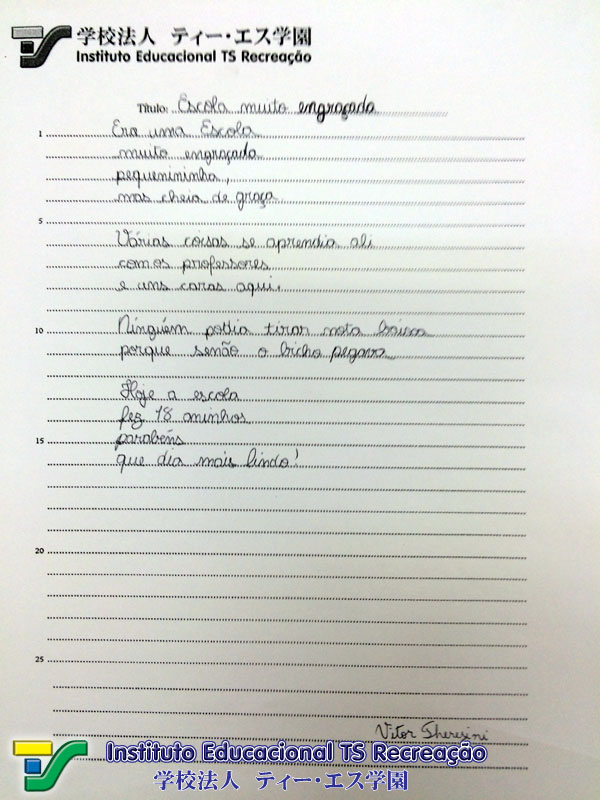 学校法人 ティー・エス学園
Instituto Educacional TS Recreação
Título: Escola muito engraçada
1 Era uma Escola
muito engraçada
pequenininha,
mas cheia de graça
5
Várias coisas se aprendia ali
com os professores
e uns caras aqui.
10 Ninguém podia tirar nota baixa
porque senão o bicho pegava
Hoje a escola
fez 18 aninhos
15 parabéns
que dia mais lindo!
20
25
Vitor Theresini
Instituto Educacional TS Recreação
学校法人 ティー・エス学園